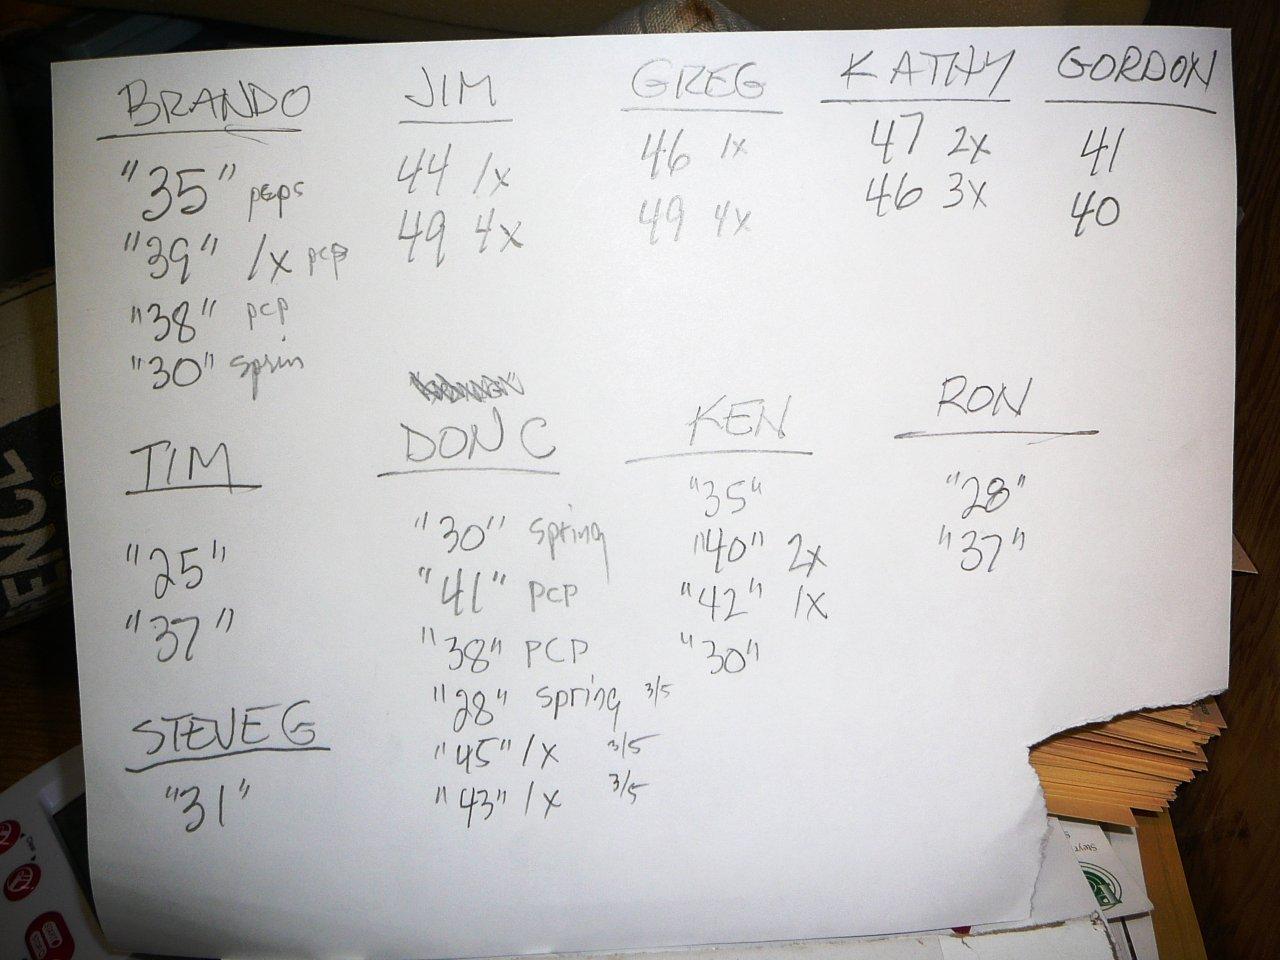 BRANDO
"35" peps
"39" 1x pcp
"38" pcp
"30" sprin
JIM
44 1x
49 4x
GREG
46 1x
49 4x
KATHY
47 2x
46 3x
GORDON
41
40
TIM
"25"
"37"
STEVE G
"31"
DON C
"30" spring
"41" pcp
"38" PCP
"28" spring 3/5
"45" 1x 3/5
"43" 1x 3/5
KEN
"35"
"40" 2x
"42" 1x
"30"
RON
"28"
"37"
ENCL